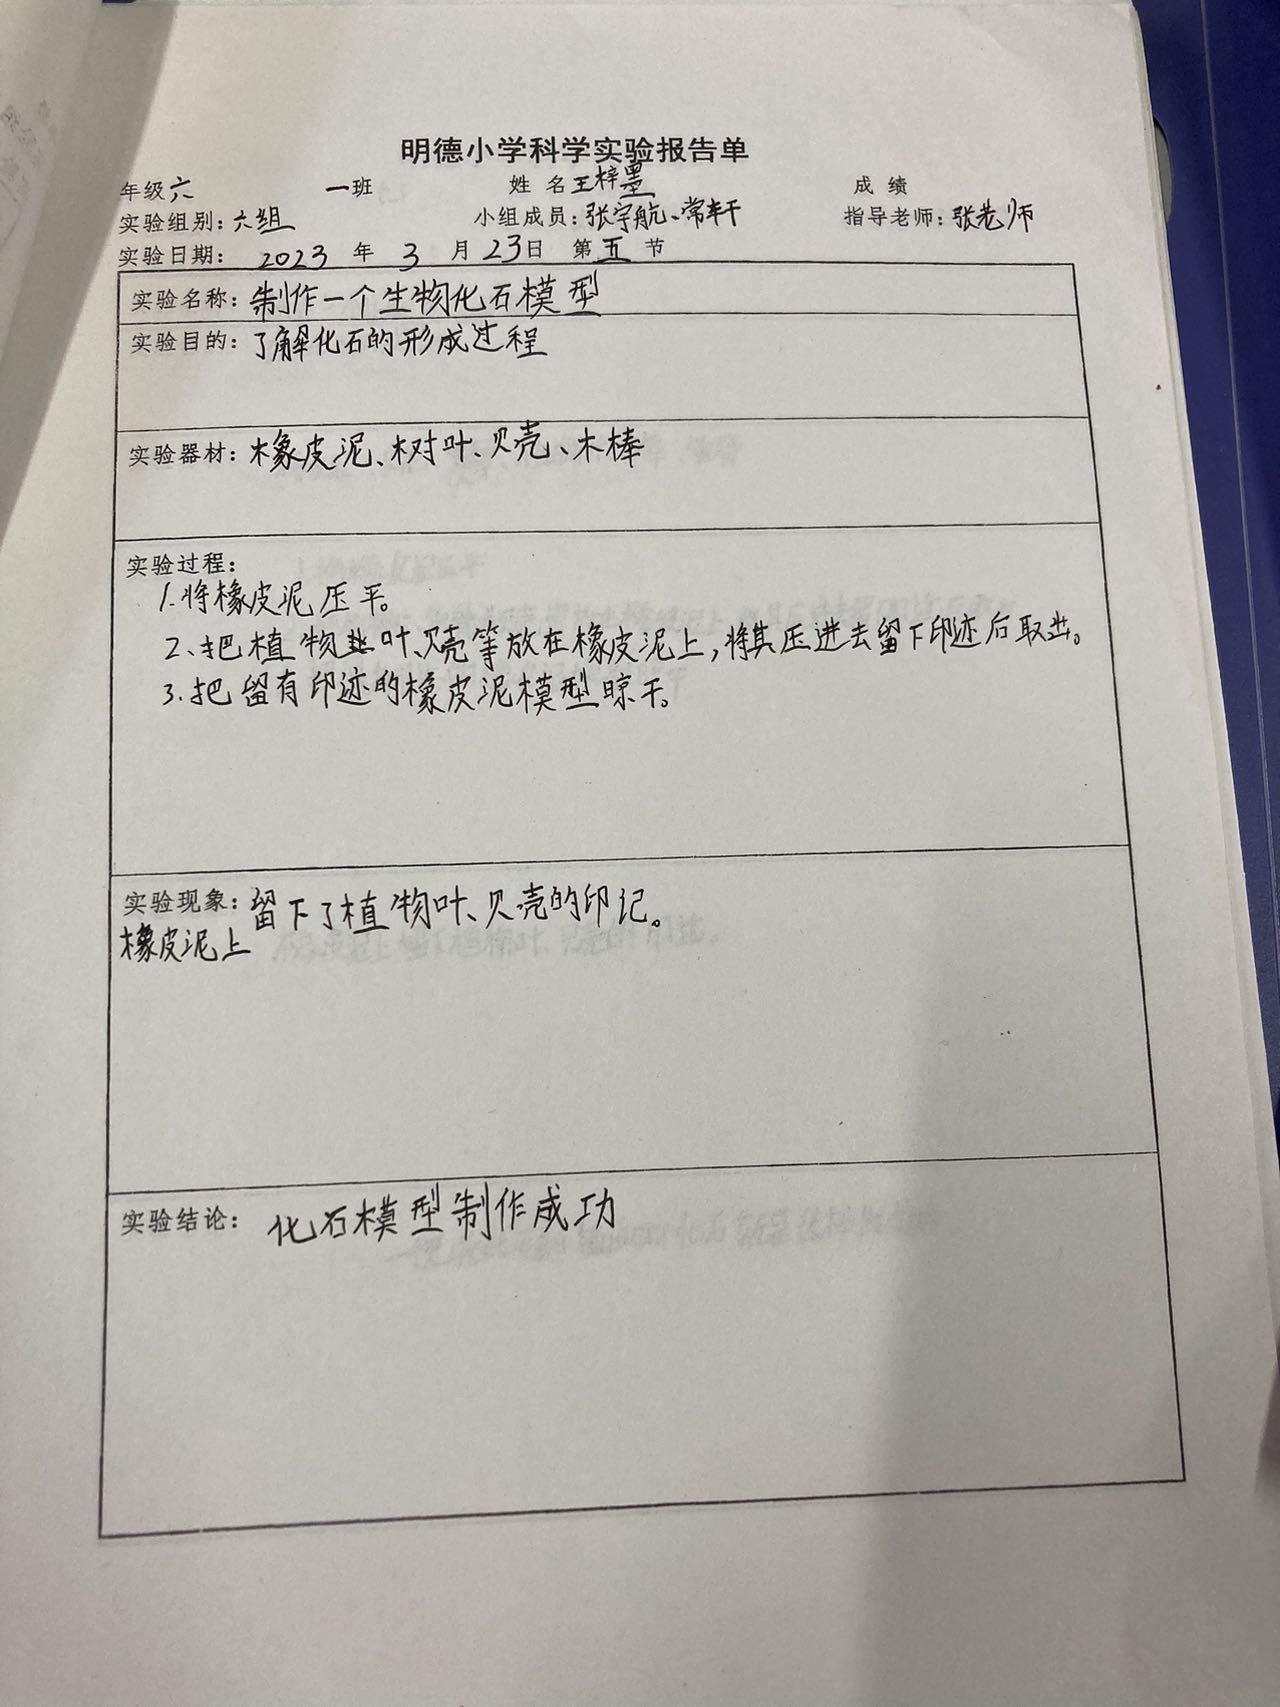 明德小学科学实验报告单
年级六 一班 姓 名王梓墨 成 绩
实验组别:六组 小组成员:张宇航、常轩 指导老师:张老师
实验日期: 2023 年 3 月 23日 第五节
实验名称:制作一个生物化石模型
实验目的:了解化石的形成过程
实验器材:橡皮泥、树叶、贝壳、木棒
实验过程:
1.将橡皮泥压平。
2、把植物叶、贝壳等放在橡皮泥上,将其压进去留下印迹后取出。
3.把留有印迹的橡皮泥模型晾干。
实验现象:留下了植物叶、贝壳的印记。
橡皮泥上
实验结论:化石模型制作成功